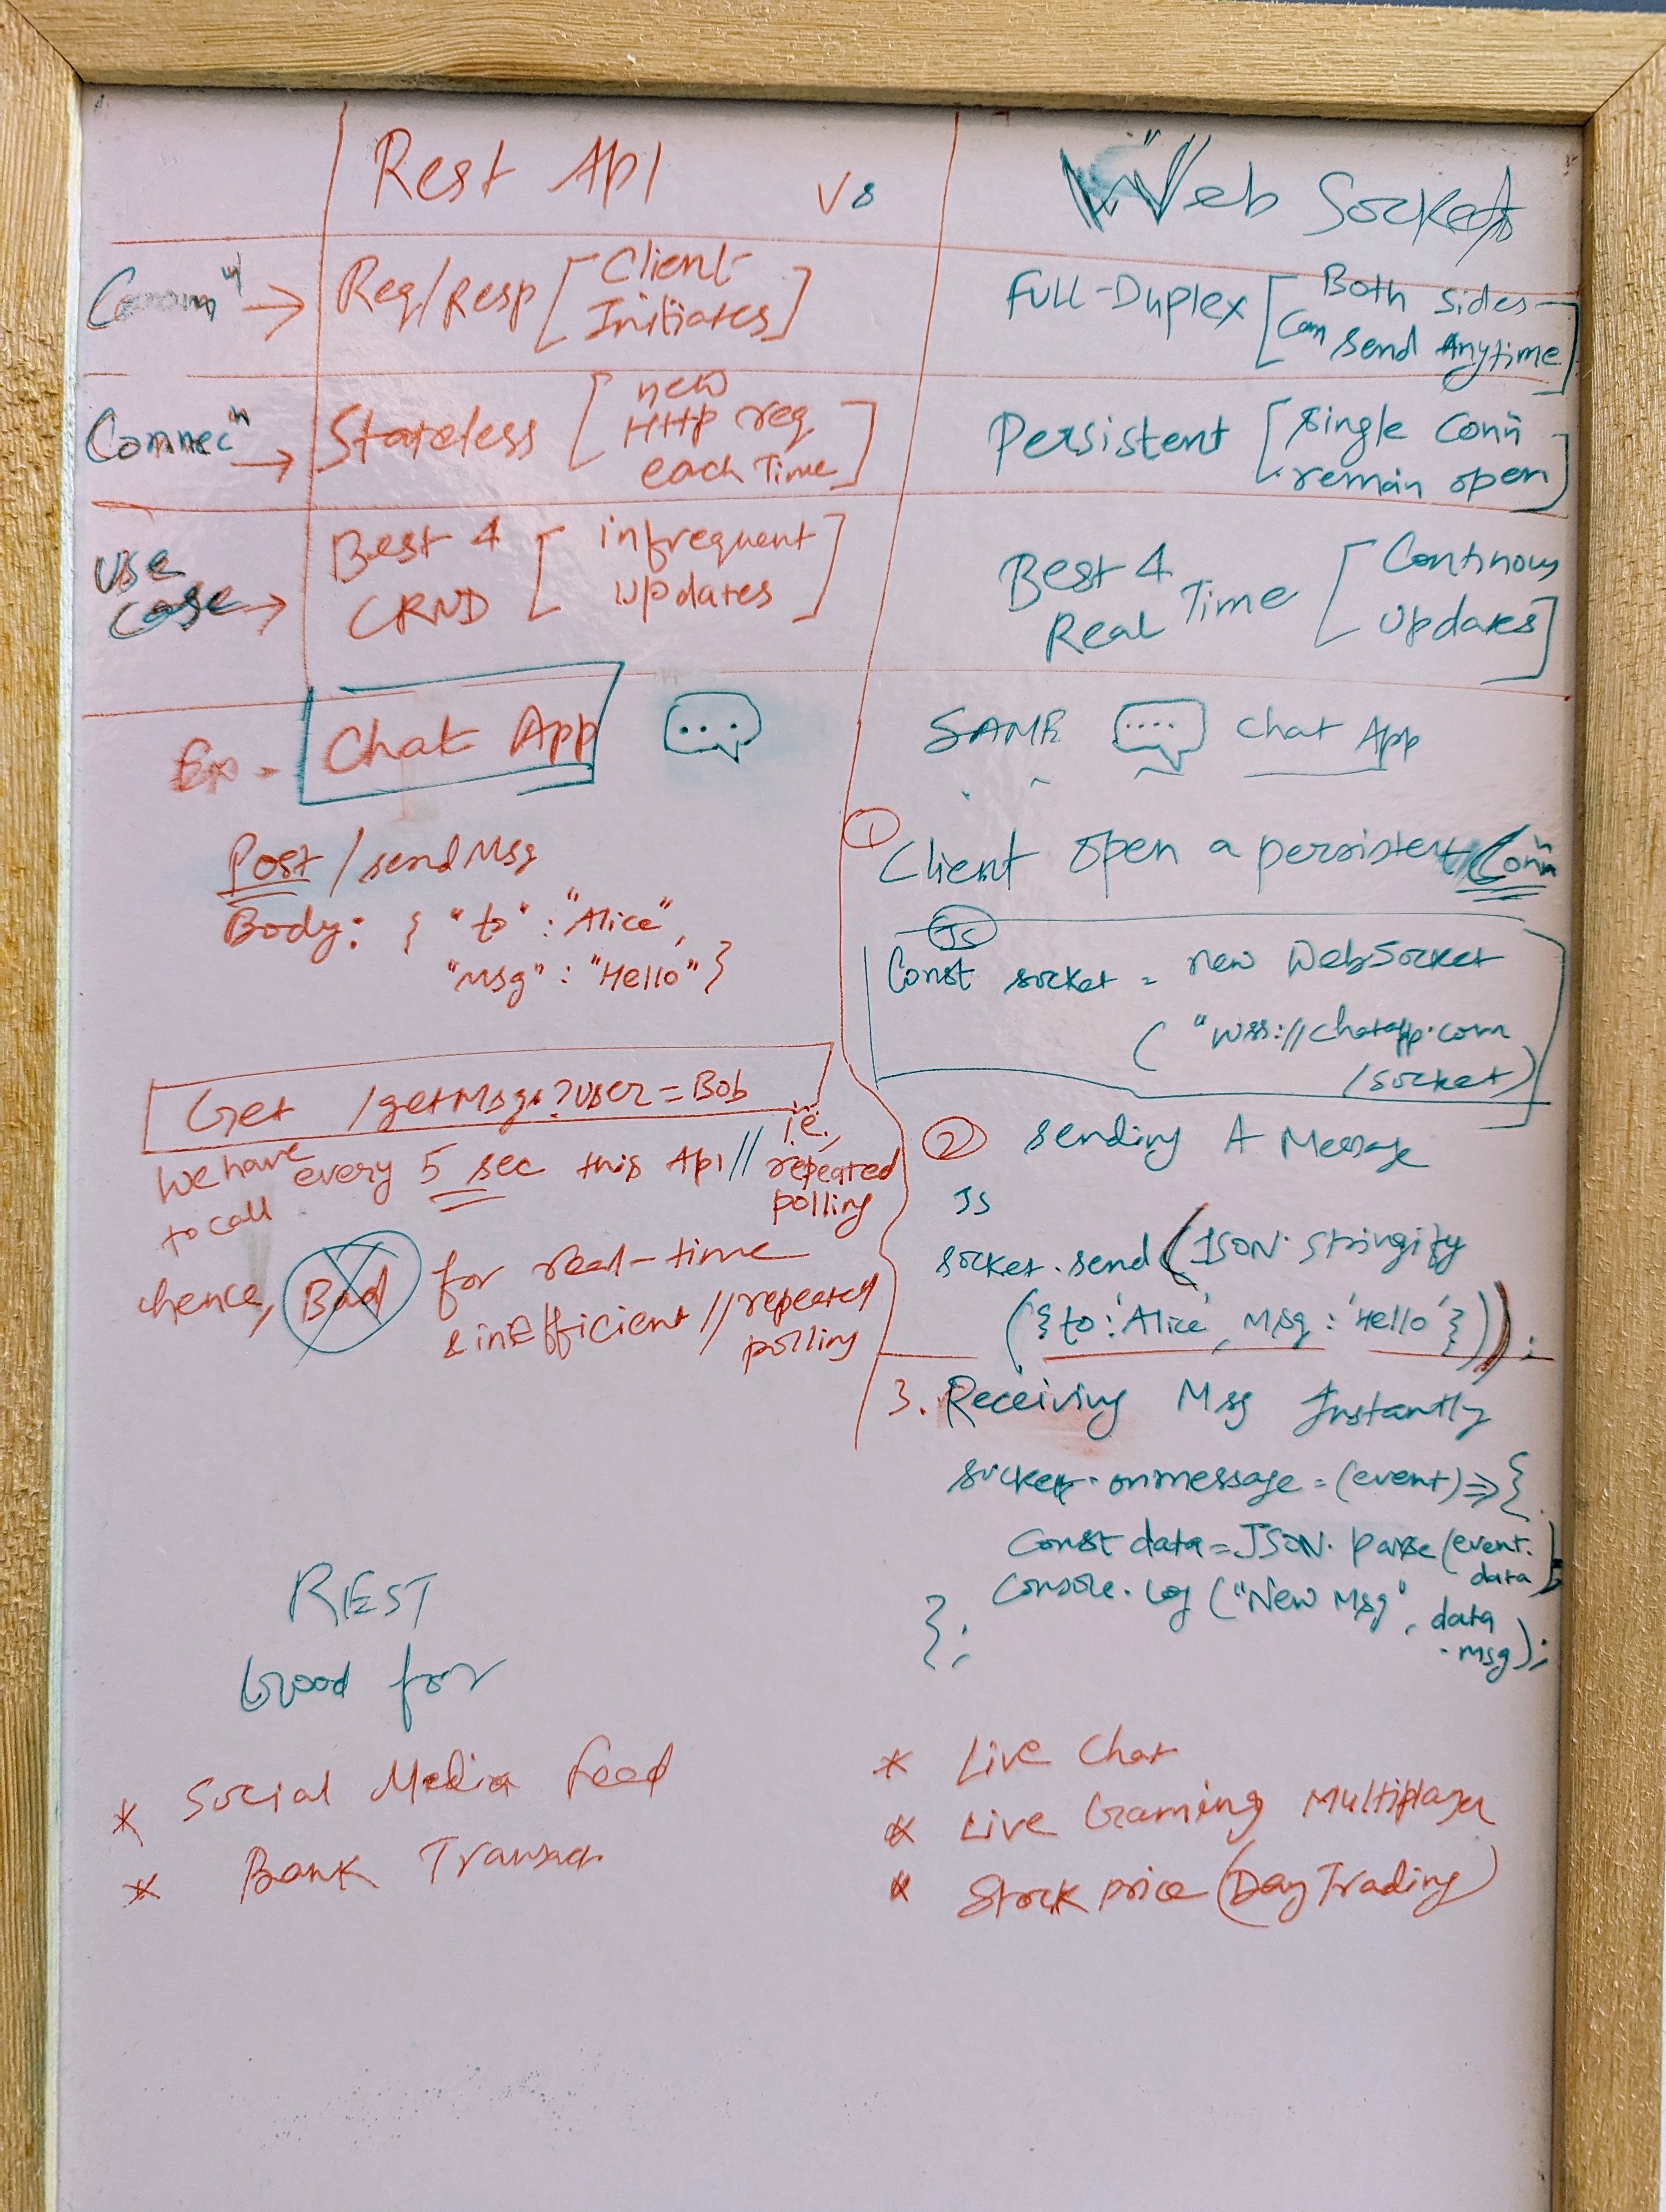 Rest API Vs Web Sockets
Commⁿ → Req/Resp [Client Initiates]
Full-Duplex [Both sides Can send Anytime]
Connecⁿ → Stateless [new Http req each Time]
Persistent [single Conn remain open]
Use Case → Best 4 CRUD [infrequent updates]
Best 4 Real Time [Continous updates]
Ex - Chat App
SAME chat App
Post /sendMsg
Body: { "to" : "Alice",
"Msg" : "Hello" }
Get /getMsgs?user=Bob
We have to call every 5 sec this Api // i.e, repeated polling
hence, Bad for real-time
& inEfficient // repeated polling
① Client open a persistent Connⁿ
JS
Const socket = new WebSocket
( "wss://chatapp.com
/socket)
② sending A Message
JS
socket.send(JSON.stringify
({to:'Alice', Msg:'Hello'}));
3. Receiving Msg Instantly
socket.onmessage = (event) => {
Const data = JSON.parse(event.data);
Console.log ("New Msg", data.msg);
};
REST
Good for
* Social Media feed
* Bank Transac.
* Live Chat
* Live Gaming Multiplayer
* Stock price (Day Trading)